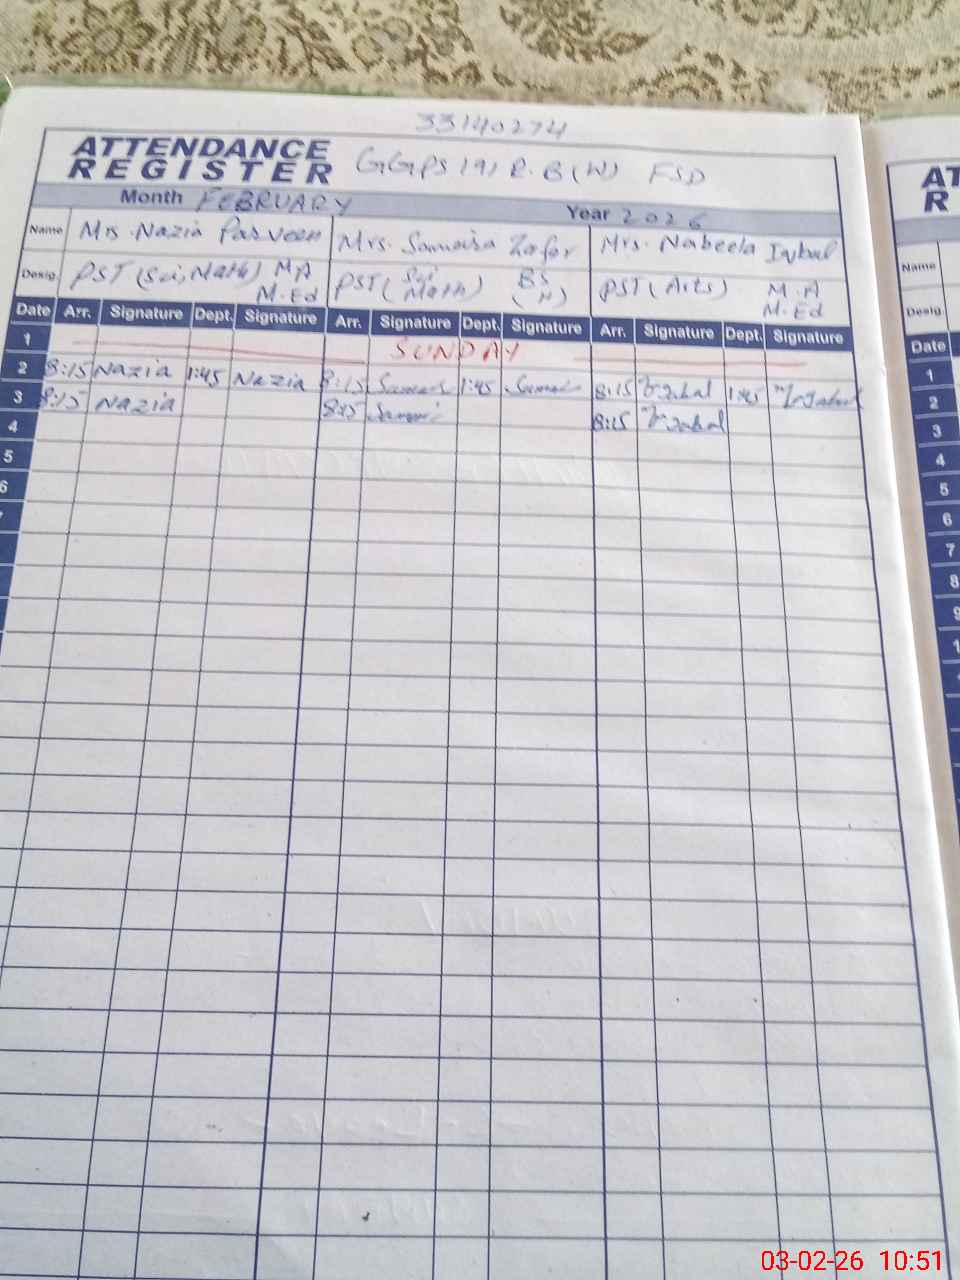 33140274
ATTENDANCE REGISTER GGPS 191 R.B (W) FSD
Month FEBRUARY Year 2026
Name Mrs. Nazia Parveen Mrs. Samaira Zafar Mrs. Nabeela Iqbal
Desig. PST (Sci, Math) MA M.Ed PST (Sci Math) BS (H) PST (Arts) M.A M.Ed
Date Arr. Signature Dept. Signature Arr. Signature Dept. Signature Arr. Signature Dept. Signature
1 SUNDAY
2 8:15 Nazia 1:45 Nazia 8:15 1:45 8:15 1:45
3 8:15 Nazia 8:15 8:15
4
5
6
7
AT
R
Name
Desig.
Date
1
2
3
4
5
6
7
8
9
03-02-26 10:51